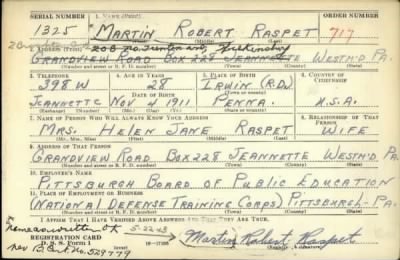 SERIAL NUMBER 1. NAME (Print) ORDER NUMBER
1325 MARTIN ROBERT RASPET 717
(First) (Middle) (Last)
2. ADDRESS (Print)
GRANDVIEW ROAD BOX 228 JEANNETTE WESTM'D PA.
(Number and street or R. F. D. number) (Town) (County) (State)
3. TELEPHONE 4. AGE IN YEARS 5. PLACE OF BIRTH 6. COUNTRY OF CITIZENSHIP
398 W 28 IRWIN (R.D.)
DATE OF BIRTH
JEANNETTE NOV 4 1911 PENNA. U.S.A.
(Exchange) (Mo.) (Day) (Yr.) (State or country)
7. NAME OF PERSON WHO WILL ALWAYS KNOW YOUR ADDRESS 8. RELATIONSHIP OF THAT PERSON
MRS. HELEN JANE RASPET WIFE
(Mr., Mrs., Miss) (First) (Middle) (Last)
9. ADDRESS OF THAT PERSON
GRANDVIEW ROAD BOX 228 JEANNETTE WESTM'D PA.
(Number and street or R. F. D. number) (Town) (County) (State)
10. EMPLOYER'S NAME
PITTSBURGH BOARD OF PUBLIC EDUCATION
11. PLACE OF EMPLOYMENT OR BUSINESS
(NATIONAL DEFENSE TRAINING CORPS) PITTSBURGH PA.
(Number and street or R. F. D. number) (Town) (County) (State)
I AFFIRM THAT I HAVE VERIFIED ABOVE ANSWERS AND THAT THEY ARE TRUE.
Name as written OK 5-22-43
REGISTRATION CARD
D. S. S. Form 1 Martin Robert Raspet
(over) (Registrant's signature)
per B. Cert. No. 529779